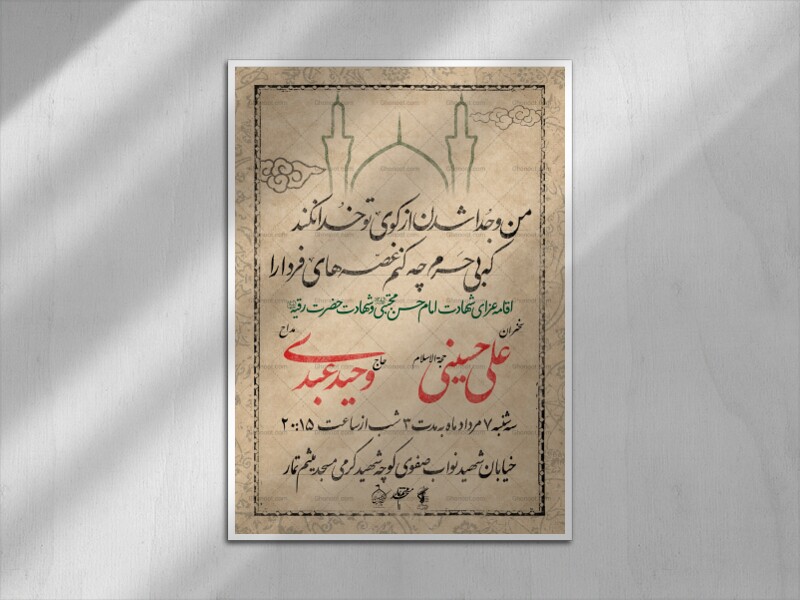 من و جدا شدن از کوی تو خدا نکند
که بی حرم چه کنم غصه های فردا را
اقامه عزای شهادت امام حسن مجتبی و شهادت حضرت رقیه
سخنران
حجة الاسلام
علی حسینی
مداح
حاج
وحید عبدی
سه شنبه ۷ مرداد ماه به مدت ۳ شب از ساعت ۲۰:۱۵
خیابان شهید نواب صفوی کوچه شهید کرمی مسجد میثم تمار